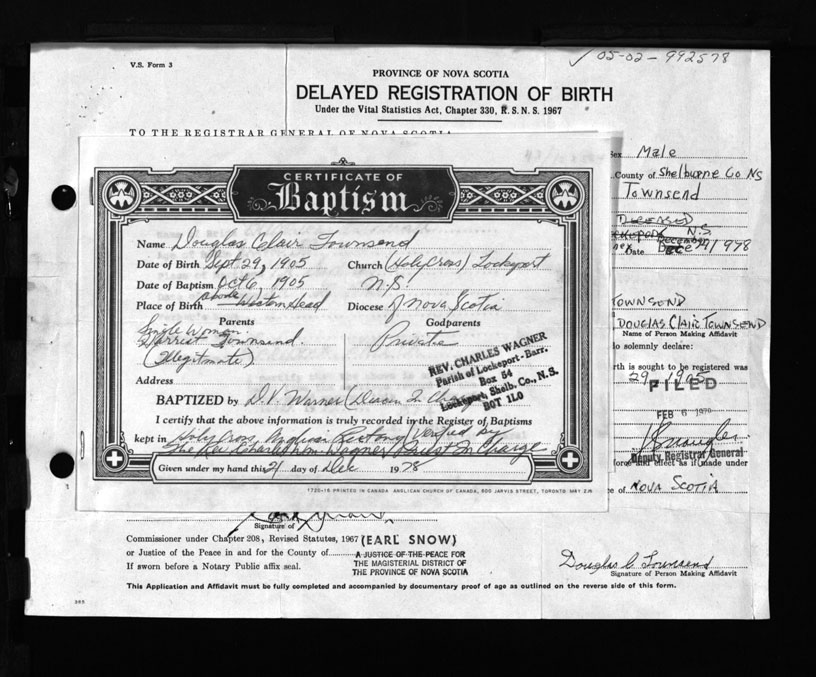 05-02-992578
V.S. Form 3
PROVINCE OF NOVA SCOTIA
DELAYED REGISTRATION OF BIRTH
Under the Vital Statistics Act, Chapter 330, R.S.N.S. 1967
TO THE REGISTRAR GENERAL OF NOVA SCOTIA
Sex Male
County of Shelburne Co NS
Townsend
DECEASED
N.S.
December
Date Dece 21/978
TOWNSEND
DOUGLAS Clair TOWNSEND
Name of Person Making Affidavit
do solemnly declare:
rth is sought to be registered was
29, 1905
FILED
FEB 6 1979
Deputy Registrar General
force and effect as if made under
e of NOVA SCOTIA
CERTIFICATE OF
Baptism
Name Douglas Clair Townsend
Date of Birth Sept. 29, 1905 Church (Holy Cross) Lockeport
Date of Baptism Oct 6, 1905 N.S.
Place of Birth above Western Head Diocese of Nova Scotia
Parents Godparents
Single Woman Private
Harriet Townsend.
(Illegitimate)
Address
REV. CHARLES WAGNER
Parish of Lockeport-Barr.
Box 54
Lockeport, Shelb. Co., N.S.
BOT 1L0
BAPTIZED by D.V. Warner (
I certify that the above information is truly recorded in the Register of Baptisms
kept in Holy Cross Anglican Rectory Verified by
The Rev Charles Wm. Wagner Priest In Charge
Given under my hand this 21 day of Dec 1978
1720-16 PRINTED IN CANADA ANGLICAN CHURCH OF CANADA, 600 JARVIS STREET, TORONTO MAY 2/6
Signature of
Commissioner under Chapter 208, Revised Statutes, 1967 (EARL SNOW)
or Justice of the Peace in and for the County of A JUSTICE OF THE PEACE FOR
THE MAGISTERIAL DISTRICT OF
If sworn before a Notary Public affix seal. THE PROVINCE OF NOVA SCOTIA
Douglas C. Townsend
Signature of Person Making Affidavit
This Application and Affidavit must be fully completed and accompanied by documentary proof of age as outlined on the reverse side of this form.